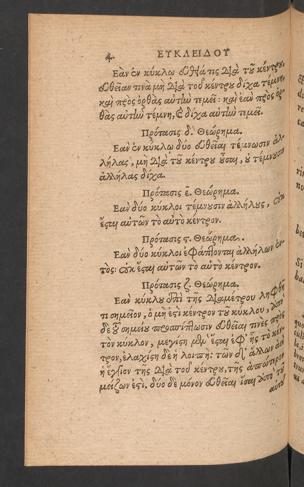 4 ΕΥΚΛΕΙΔΟΥ
Ἐὰν ἐν κύκλῳ εὐθεῖά τις διὰ τοῦ κέντρου,
εὐθεῖάν τινα μὴ διὰ τοῦ κέντρου δίχα τέμνῃ,
καὶ πρὸς ὀρθὰς αὐτὴν τεμεῖ: καὶ ἐὰν πρὸς ὀρ-
θὰς αὐτὴν τέμνῃ, καὶ δίχα αὐτὴν τεμεῖ.
Πρότασις δ. Θεώρημα.
Ἐὰν ἐν κύκλῳ δύο εὐθεῖαι τέμνωσιν ἀλ-
λήλας, μὴ διὰ τοῦ κέντρου οὖσαι, οὐ τέμνουσιν
ἀλλήλας δίχα.
Πρότασις ε. Θεώρημα.
Ἐὰν δύο κύκλοι τέμνωσιν ἀλλήλους, οὐκ
ἔσται αὐτῶν τὸ αὐτὸ κέντρον.
Πρότασις ς. Θεώρημα.
Ἐὰν δύο κύκλοι ἐφάπτονται ἀλλήλων ἐν-
τὸς: οὐκ ἔσται αὐτῶν τὸ αὐτὸ κέντρον.
Πρότασις ζ. Θεώρημα.
Ἐὰν κύκλου ἐπὶ τῆς διαμέτρου ληφθῇ
τι σημεῖον, ὃ μή ἐστι κέντρον τοῦ κύκλου, ἀπὸ
δὲ τοῦ σημείου προσπίπτωσιν εὐθεῖαί τινες πρὸς
τὸν κύκλον, μεγίστη μὲν ἔσται ἐφ᾽ ἧς τὸ κέν-
τρον, ἐλαχίστη δὲ ἡ λοιπή: τῶν δ᾽ ἄλλων ἀεὶ
ἡ ἔγγιον τῆς διὰ τοῦ κέντρου, τῆς ἀπώτερον
μείζων ἐστί. δύο δὲ μόνον εὐθεῖαι ἴσαι ἀπὸ τοῦ
αὐτοῦ